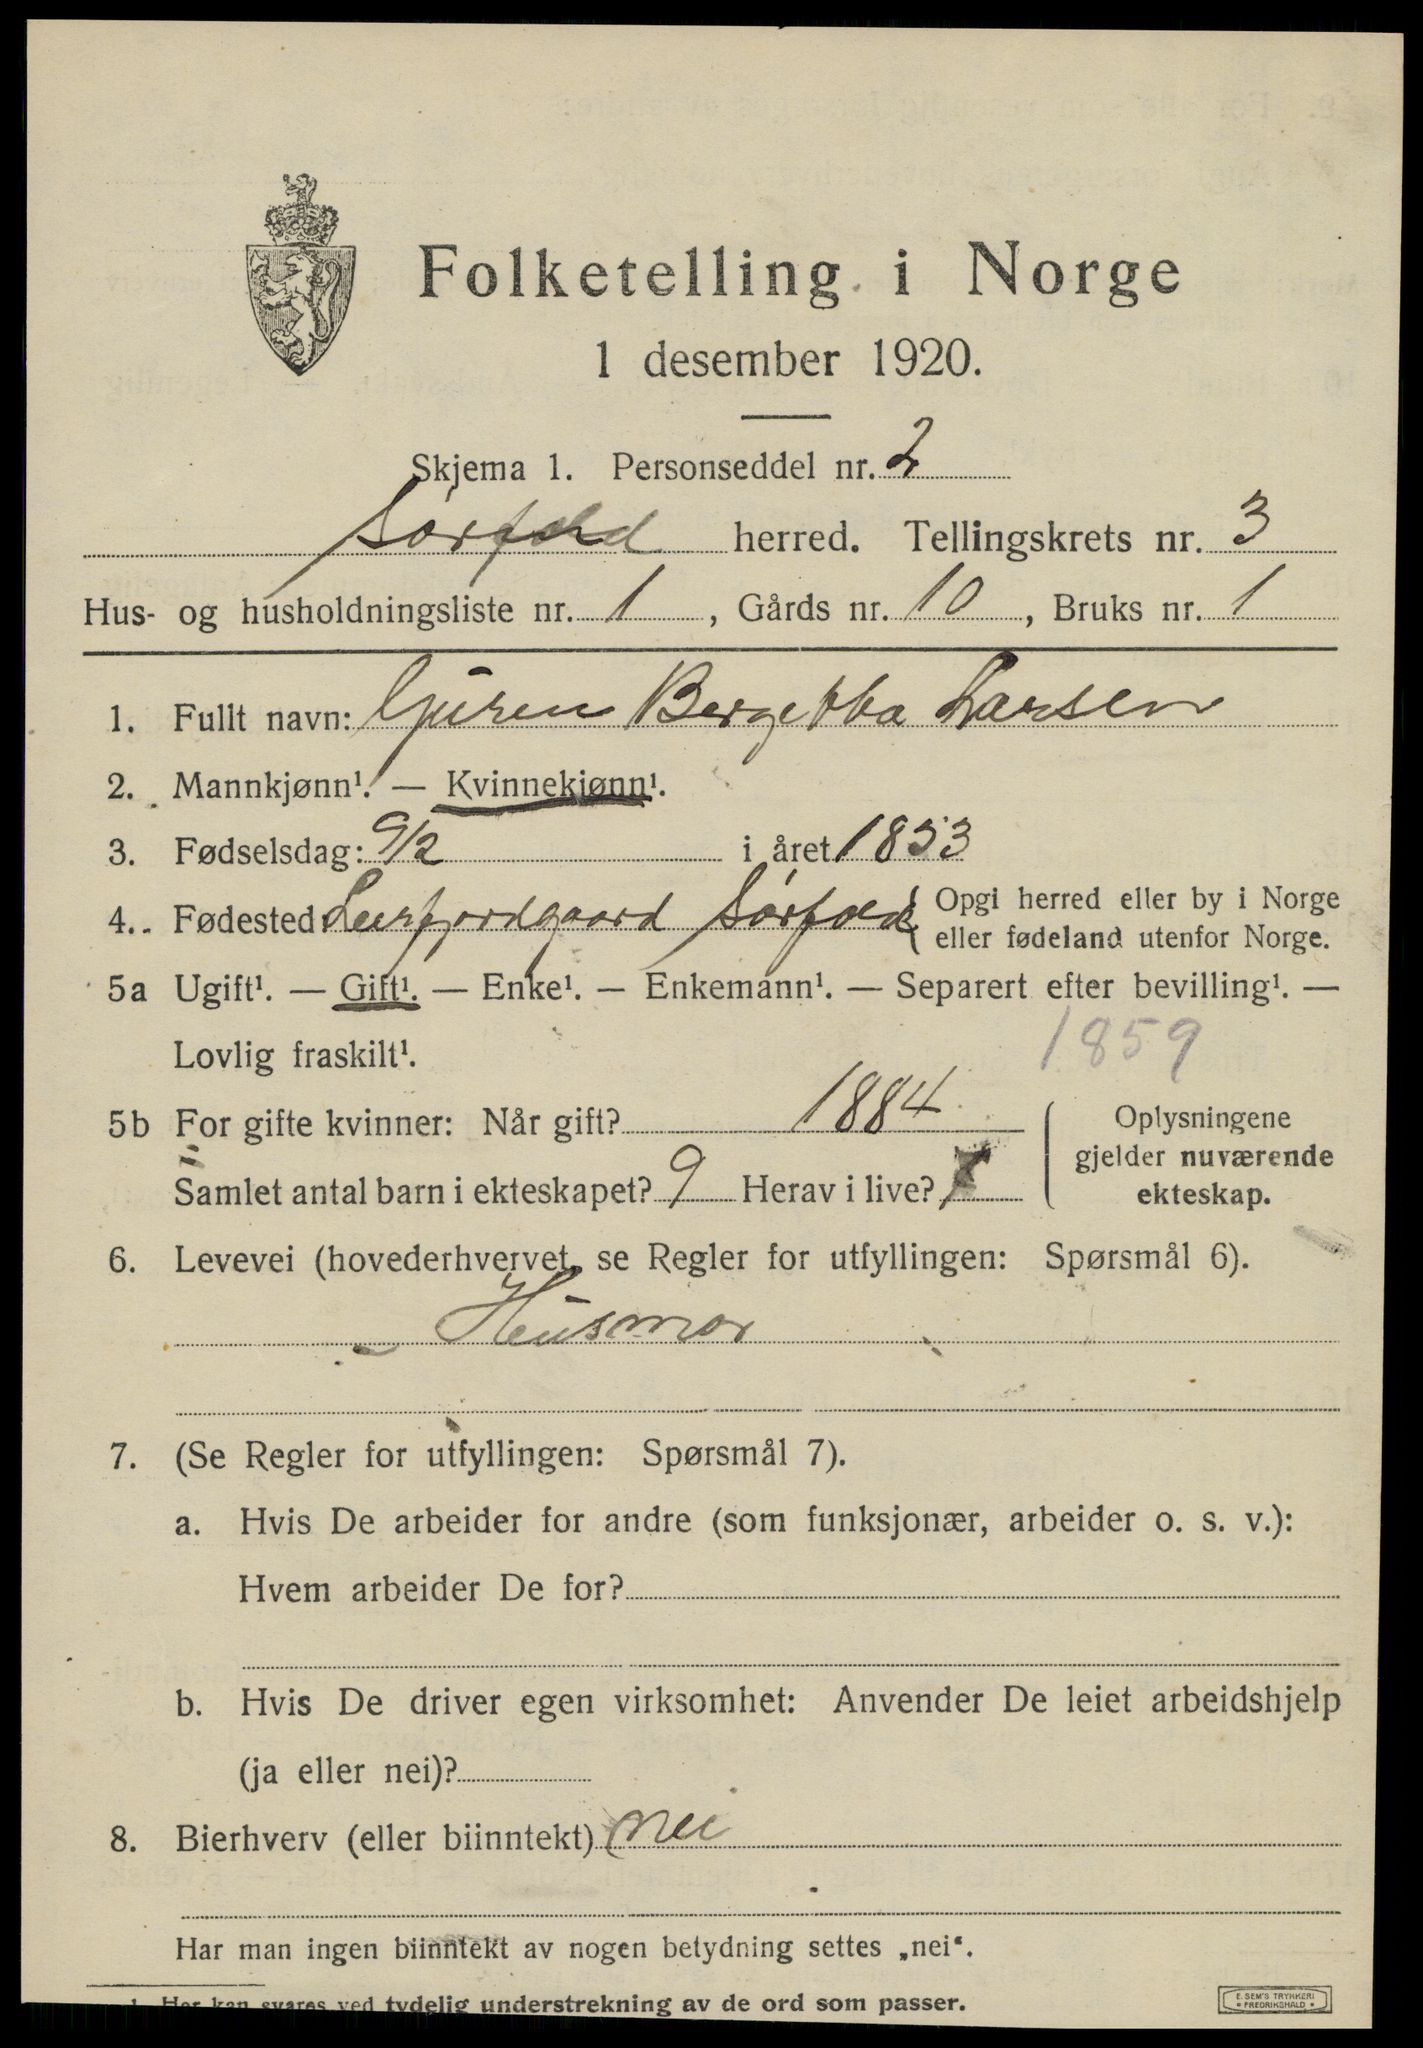 Folketelling i Norge
1 desember 1920.
Skjema 1. Personseddel nr. 2
Sørfold herred. Tellingskrets nr. 3
Hus- og husholdningsliste nr. 1, Gårds nr. 10, Bruks nr. 1
1. Fullt navn: Gjuren Bergetha Larsen
2. Mannkjønn¹. — Kvinnekjønn¹.
3. Fødselsdag: 9/2 i året 1853
4. Fødested Leirfjordgaard Sørfold { Opgi herred eller by i Norge
eller fødeland utenfor Norge.
5a Ugift¹. — Gift¹. — Enke¹. — Enkemann¹. — Separert efter bevilling¹. —
Lovlig fraskilt¹. 1859
5b For gifte kvinner: Når gift? 1884
Samlet antal barn i ekteskapet? 9 Herav i live?
Oplysningene
gjelder nuværende
ekteskap.
6. Levevei (hovederhvervet, se Regler for utfyllingen: Spørsmål 6).
Husmor
7. (Se Regler for utfyllingen: Spørsmål 7).
a. Hvis De arbeider for andre (som funksjonær, arbeider o. s. v.):
Hvem arbeider De for?
b. Hvis De driver egen virksomhet: Anvender De leiet arbeidshjelp
(ja eller nei)?
8. Bierhverv (eller biinntekt) nei
Har man ingen biinntekt av nogen betydning settes „nei“.
¹ Her kan svares ved tydelig understrekning av de ord som passer.
E. SEM'S TRYKKERI
• FREDRIKSHALD •